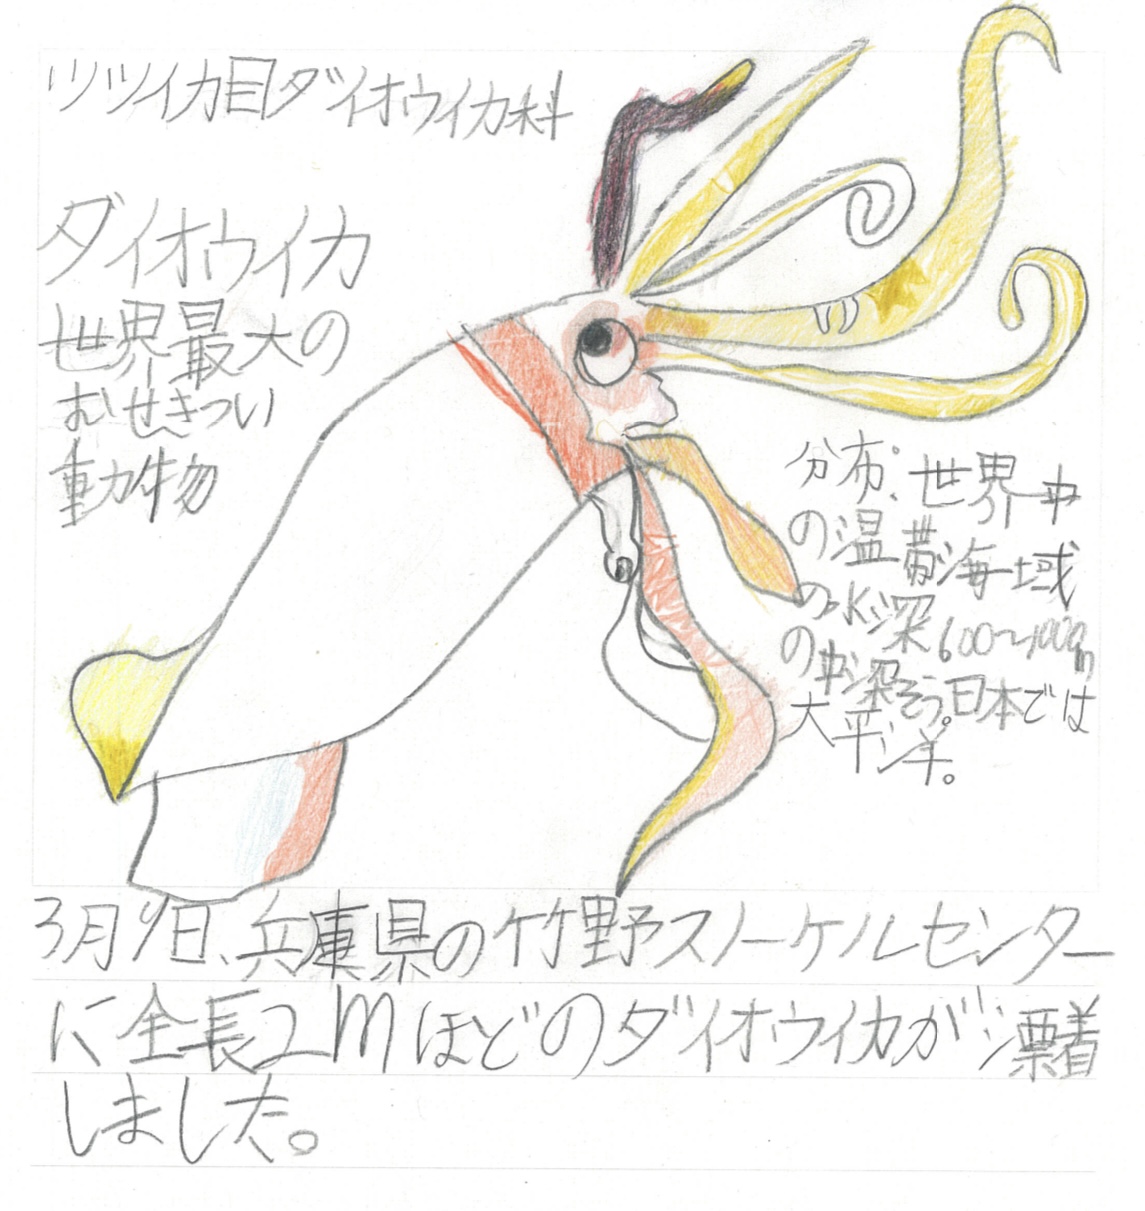 ツツイカ目ダイオウイカ科
ダイオウイカ
世界最大の
むせきつい
動物
分布:世界中
の温帯海域
の水深600〜1000m
の中深そう。日本では
大平洋。
3月9日、兵庫県の竹野スノーケルセンター
に全長2mほどのダイオウイカが漂着
しました。